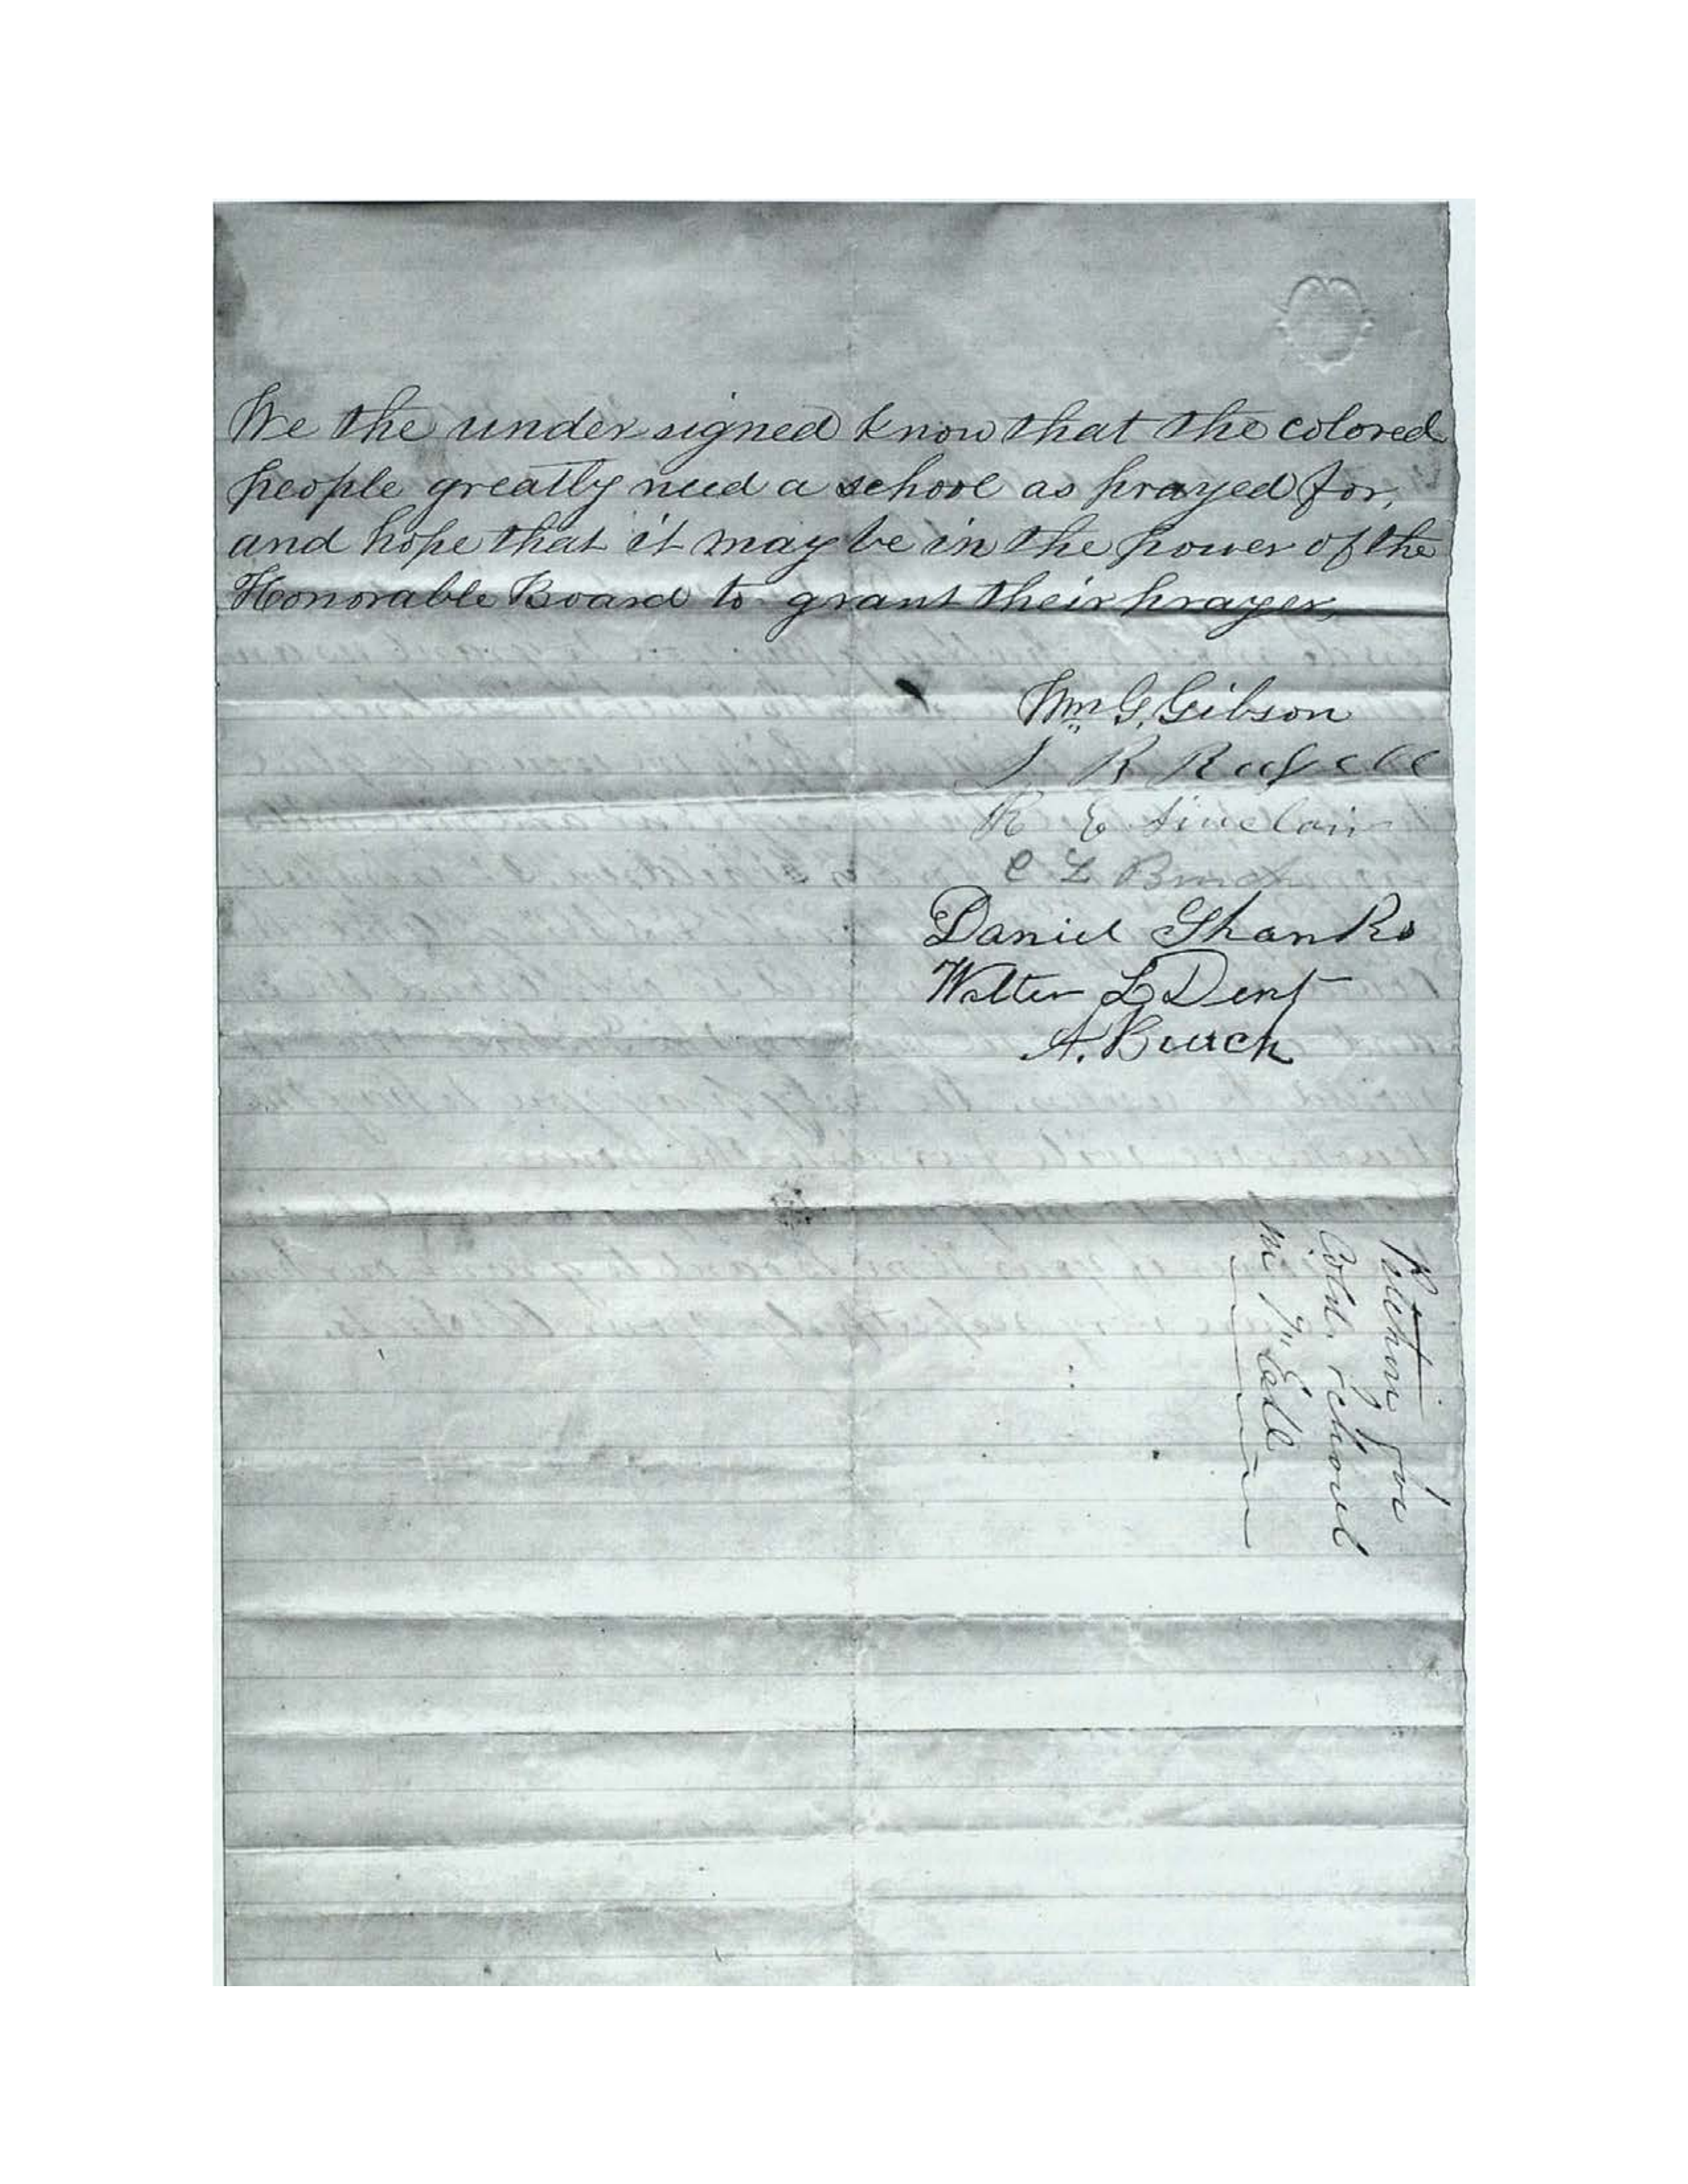 We the undersigned know that the colored
people greatly need a school as prayed for,
and hope that it may be in the power of the
Honorable Board to grant their prayer,
Wm G. Gibson
J R Russell
R E Sinclair
C L Burch
Daniel Shanks
Walter L Dent
A. Burch
Petition for
Cold. school
in 7" E